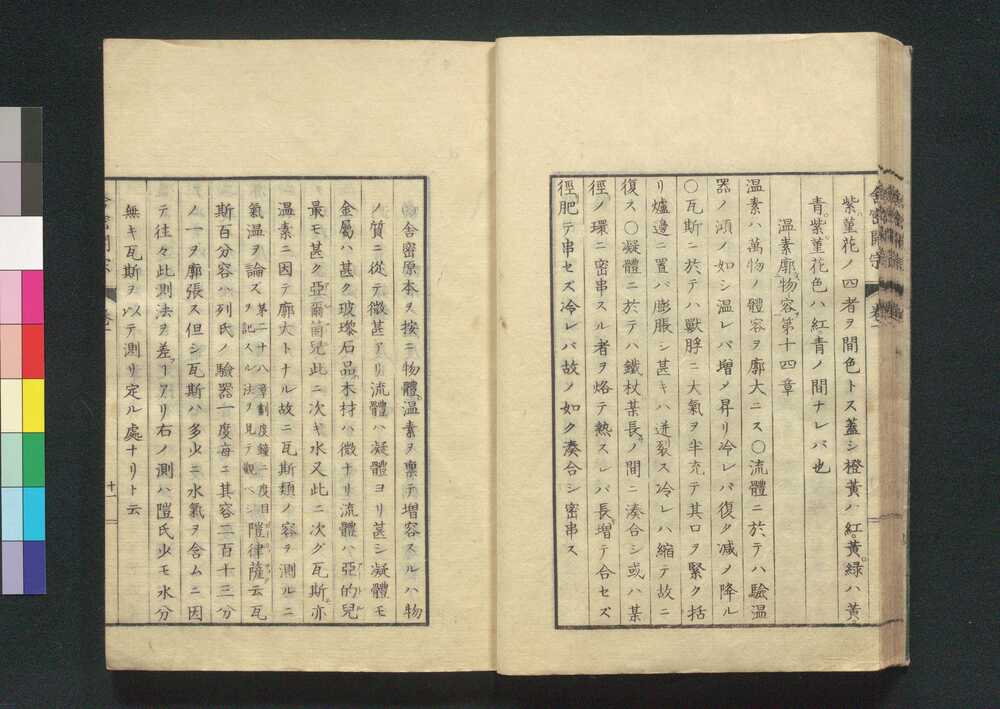 紫菫花ノ四者ヲ間色トス蓋シ橙黃ハ紅黃綠ハ黃
青紫菫花色ハ紅青ノ間ナレバ也
溫素廓物容第十四章
溫素ハ萬物ノ體容ヲ廓大ニス〇流體ニ於テハ驗溫
器ノ湏ノ如シ溫レバ增メ昇リ冷レバ復タ減ノ降ル
〇瓦斯ニ於テハ獸脬ニ大氣ヲ半充テ其口ヲ緊ク括
リ爐邊ニ置バ膨脹シ甚キハ迸裂ス冷レハ縮テ故ニ
復ス〇凝體ニ於テハ鐵杖某長ノ間ニ湊合シ或ハ某
徑ノ環ニ密串スル者ヲ烙テ熱スレバ長增テ合セズ
徑肥テ串セズ冷レバ故ノ如ク湊合シ密串ス
舍密開宗 卷一
舍密原本ヲ按ニ物體溫素ヲ稟テ增容スルハ物
ノ質ニ從テ微甚アリ流體ハ凝體ヨリ甚シ凝體モ
金屬ハ甚ク玻璨石品木材ハ微ナリ流體ハ亞的兒
最モ甚ク亞爾箇兒此ニ次キ水又此ニ次グ瓦斯亦
溫素ニ因テ廓大トナル故ニ瓦斯類ノ容ヲ測ルニ
氣溫ヲ論ス第二十八章劃度鐘ニ度目ヲ記スル法ヲ見テ觀ベシ𨺅律薩云瓦
斯百分容ハ列氏ノ驗器一度每ニ其容二百十三分
ノ一ヲ廓張ス但シ瓦斯ハ多少ニ水氣ヲ含ムニ因
テ往々此測法ヲ差フヿアリ右ノ測ハ𨺅氏少モ水分
無キ瓦斯ヲ以テ測リ定ル處ナリト云
十一